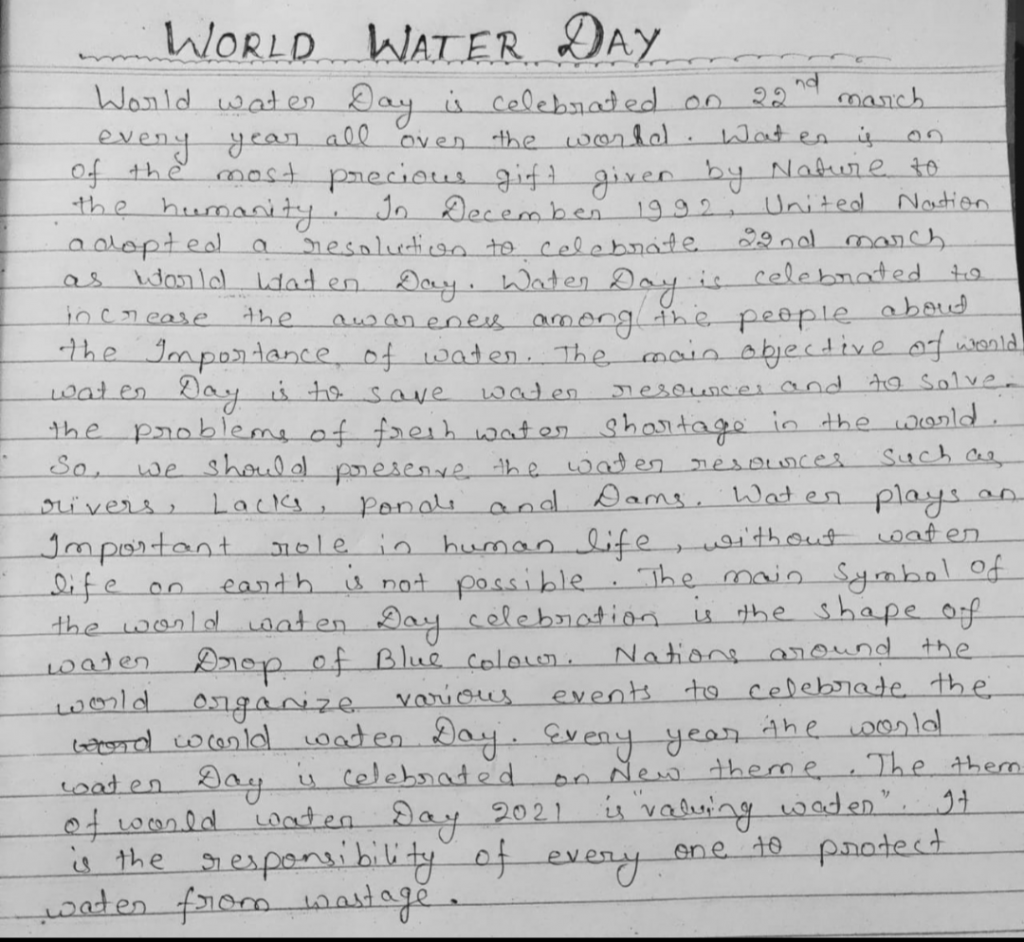 WORLD WATER DAY
World water Day is celebrated on 22nd march
every year all over the world. Water is on
of the most precious gift given by Nature to
the humanity. In December 1992, United Nation
adopted a resolution to celebrate 22nd march
as World Water Day. Water Day is celebrated to
increase the awareness among the people about
the Importance of water. The main objective of world
water Day is to save water resources and to solve
the problems of fresh water shortage in the world.
So, we should preserve the water resources such as
rivers, Lacks, ponds and Dams. Water plays an
Important role in human life, without water
life on earth is not possible. The main Symbol of
the world water Day celebration is the shape of
water Drop of Blue colour. Nations around the
world organize various events to celebrate the
world water Day. Every year the world
water Day is celebrated on New theme. The them
of world water Day 2021 is "valuing water". It
is the responsibility of every one to protect
water from wastage.